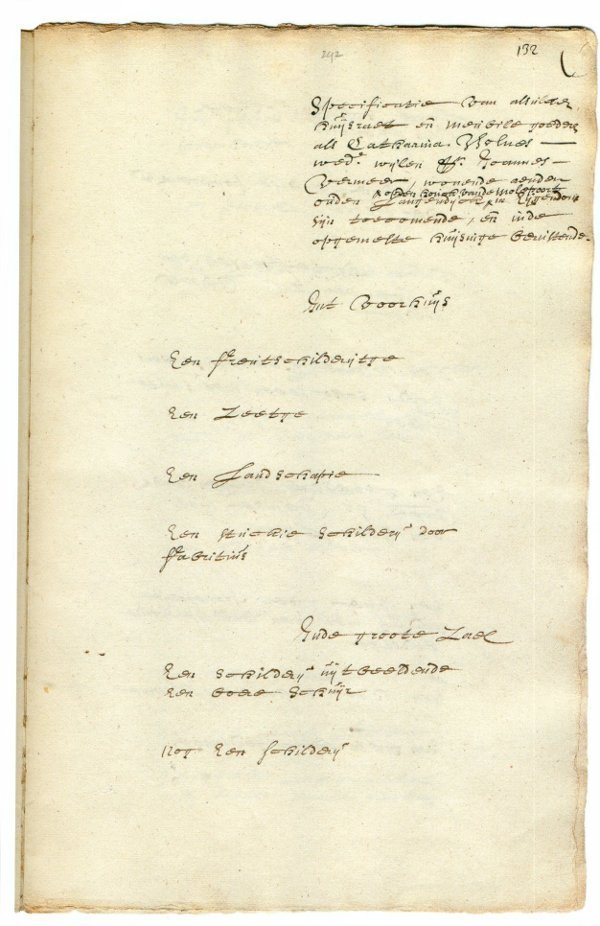 292
132
Specificatie van alsulcke
huijsraet en meubile goeden
als Catharina Bolnes
wede. wijlen Sr. Joannes
Vermeer, wonende aenden
op den houck vande Molepoort
ouden Langendijck in
sijn toecomende, en inde
opgemelte huijsinge berustende.
Int Voorhuijs
Een fruitschilderijtge
Een Zeetge
Een Landschapie
Een stuckie schilderij door
Fabritius
Inde groote Zael
Een schilderij uijtbeeldende
een boere schuijr
nog Een schilderij